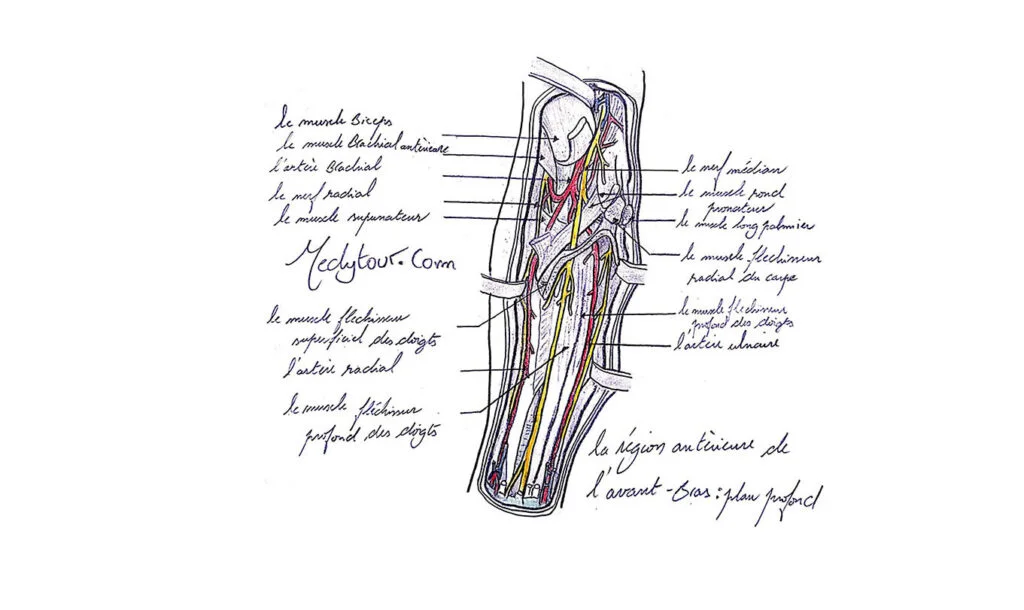 le muscle Biceps
le muscle Brachial antèrieure
l'artère Brachial
le nerf radial
le muscle supunateur
Medytour.Com
le muscle fléchisseur
superficiel des doigts
l'artère radial
le muscle fléchisseur
profond des doigts
le nerf médian
le muscle rond
pronateur
le muscle long palmier
le muscle fléchisseur
radial du carpe
le muscle fléchisseur
profond des doigts
l'artère ulnaire
la région antèrieure de
l'avant-Bras : plan profond